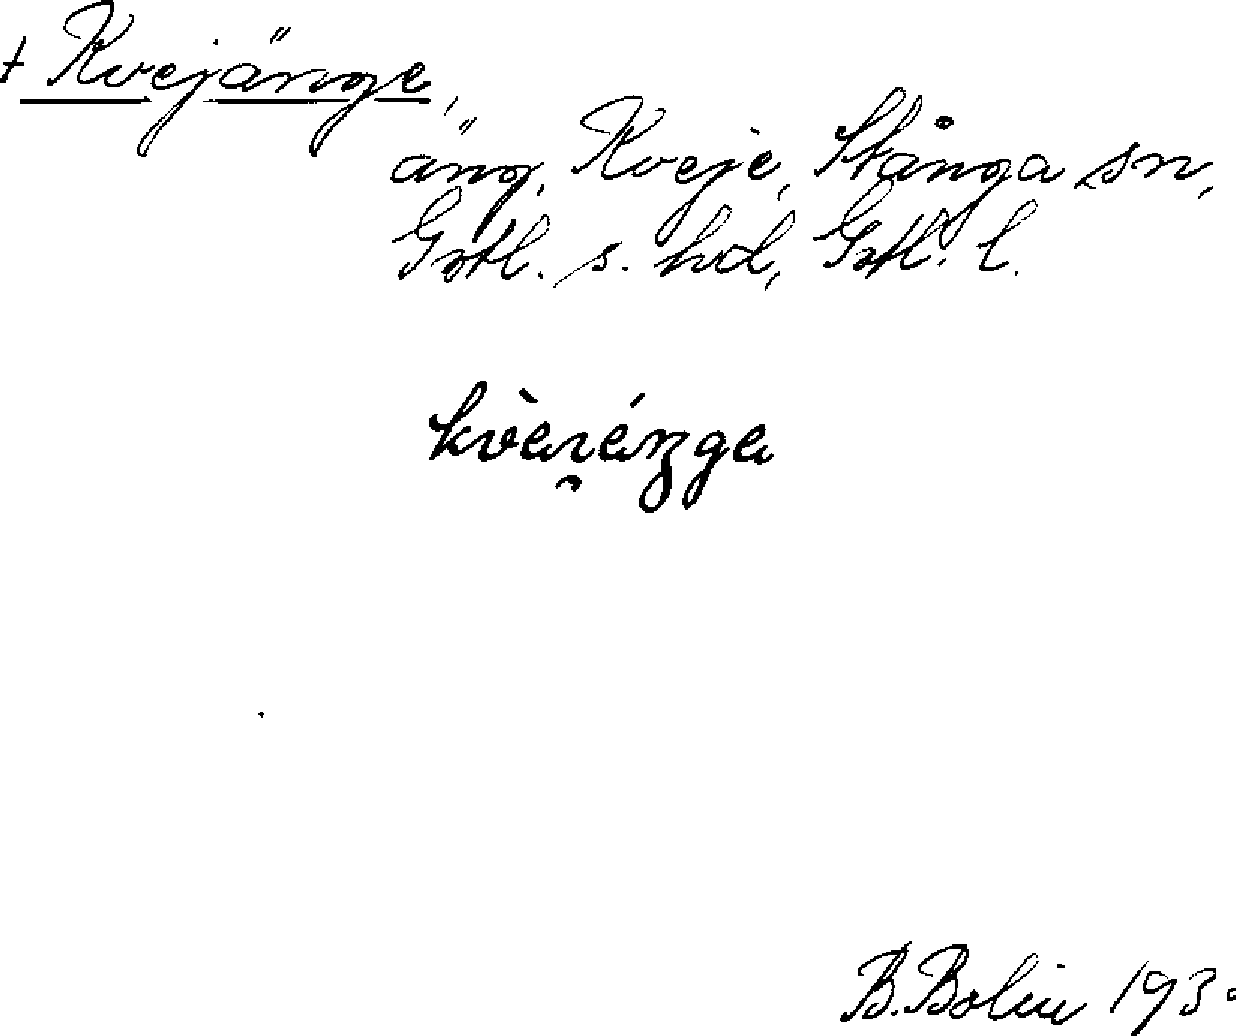 + Kvejänge,
äng, Kveje, Stånga sn,
Gotl. s. hd, Gotl. l.
B. Bolin 1930